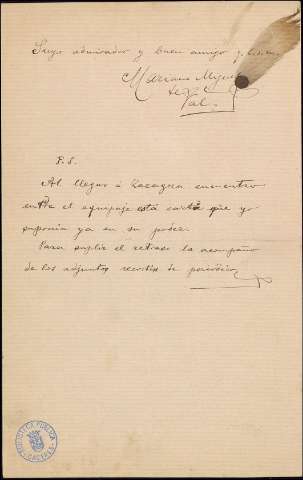 Suyo admirador y buen amigo
Mariano Miguel
de
Val.
P.S.
Al llegar á Zaragoza encuentro
entre el equipaje esta carta que yo
suponía ya en su poder.
Para suplir el retraso la acompaño
de los adjuntos recortes de periódico
BIBLIOTECA PUBLICA
CACERES